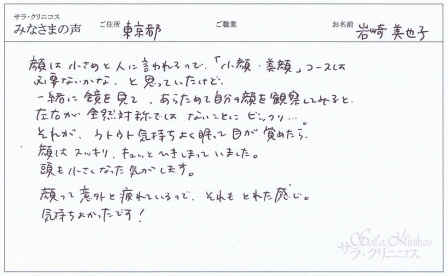 サラ・クリニコス
みなさまの声
ご住所 東京都
ご職業
お名前 岩崎 美也子
顔は小さめと人に言われるので、「小顔・美顔」コースは
必要ないかな、と思っていたけど、
一緒に鏡を見て、あらためて自分の顔を観察してみると、
左右が全然対称ではないことにビックリ…。
それが、ウトウト気持ちよく眠って目が覚めたら、
顔はスッキリ、キュッとひきしまっていました。
頭も小さくなった気がします。
顔って意外と疲れているので、それもとれた感じ。
気持ちよかったです!
Sala Klinikos
サラ・クリニコス